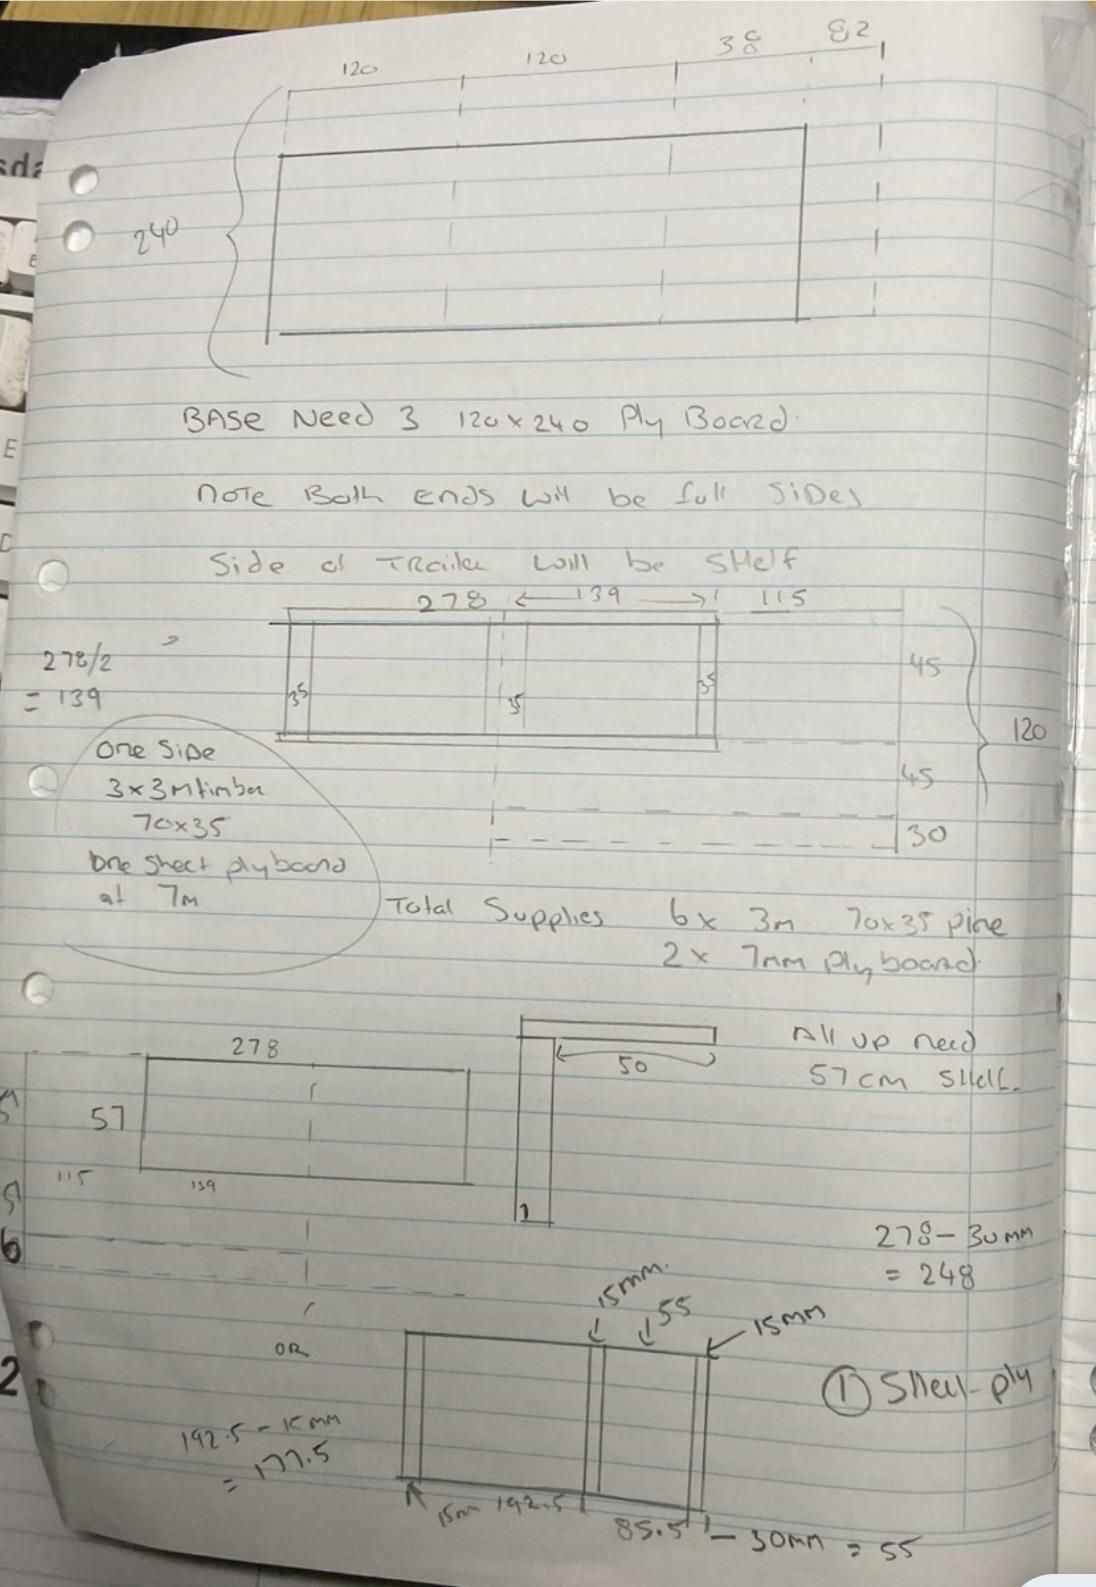 120
120
38
82
240
BASE Need 3 120x240 Ply Board.
NOTE Both ENDS will be full SiDes
Side of TRailer will be SHelf
278 139 115
278/2
= 139
35
35
35
45
120
45
30
One SiDe
3x3M timber
70x35
One Sheet plyboard
at 7M
Total Supplies 6x 3m 70x35 pine
2x 7mm Plyboard
278
57
115
139
50
All up need
57cm Shelf.
6
278 - 30mm
= 248
15mm.
55
15mm
OR
① Shelf-ply
2
192.5 - 15mm
= 177.5
15m 192.5
85.5 - 30mm = 55